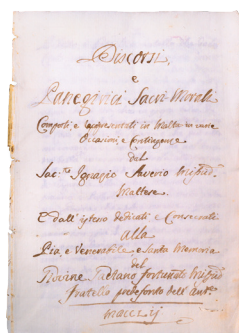 Discorsi,
e
Panegirici Sacri Morali
Composti, e rappresentati in Malta in varie
Occasioni, e Contingenze
dal
Sac:te Ignazio Saverio Mifsud
Maltese.
E dall'istesso dedicati e Consecrati
alla
Pia, e Venerabile, e Santa Memoria
del
Gaetano Fortunato Mifsud
fratello predefonto dell'